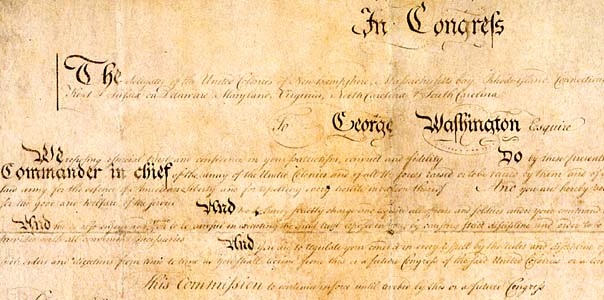 In Congress
The delegates of the United Colonies of New hampshire, Massachusetts bay, Rhode Island, Connecticut
Kent & Sussex on Delaware, Maryland, Virginia, North Carolina, & South Carolina
To George Washington Esquire
We reposing especial trust and confidence in your patriotism, conduct and fidelity Do by these presents
Commander in chief of the army of the United Colonies and of all the forces raised or to be raised by them and of a
said army for the defence of American Liberty and for repelling every hostile invasion thereof And you are hereby
for the good and welfare of the service
And we hereby strictly charge and require all officers and soldiers under your command
And we also you to be in executing the great trust reposed in you, by causing strict discipline and order to be
with all convenient
And you are to regulate your conduct in every respect by the rules and discipline of
orders and directions from time to time as you shall receive from this or a future Congress of the said United Colonies or
This Commission to continue in force until revoked by this or a future Congress